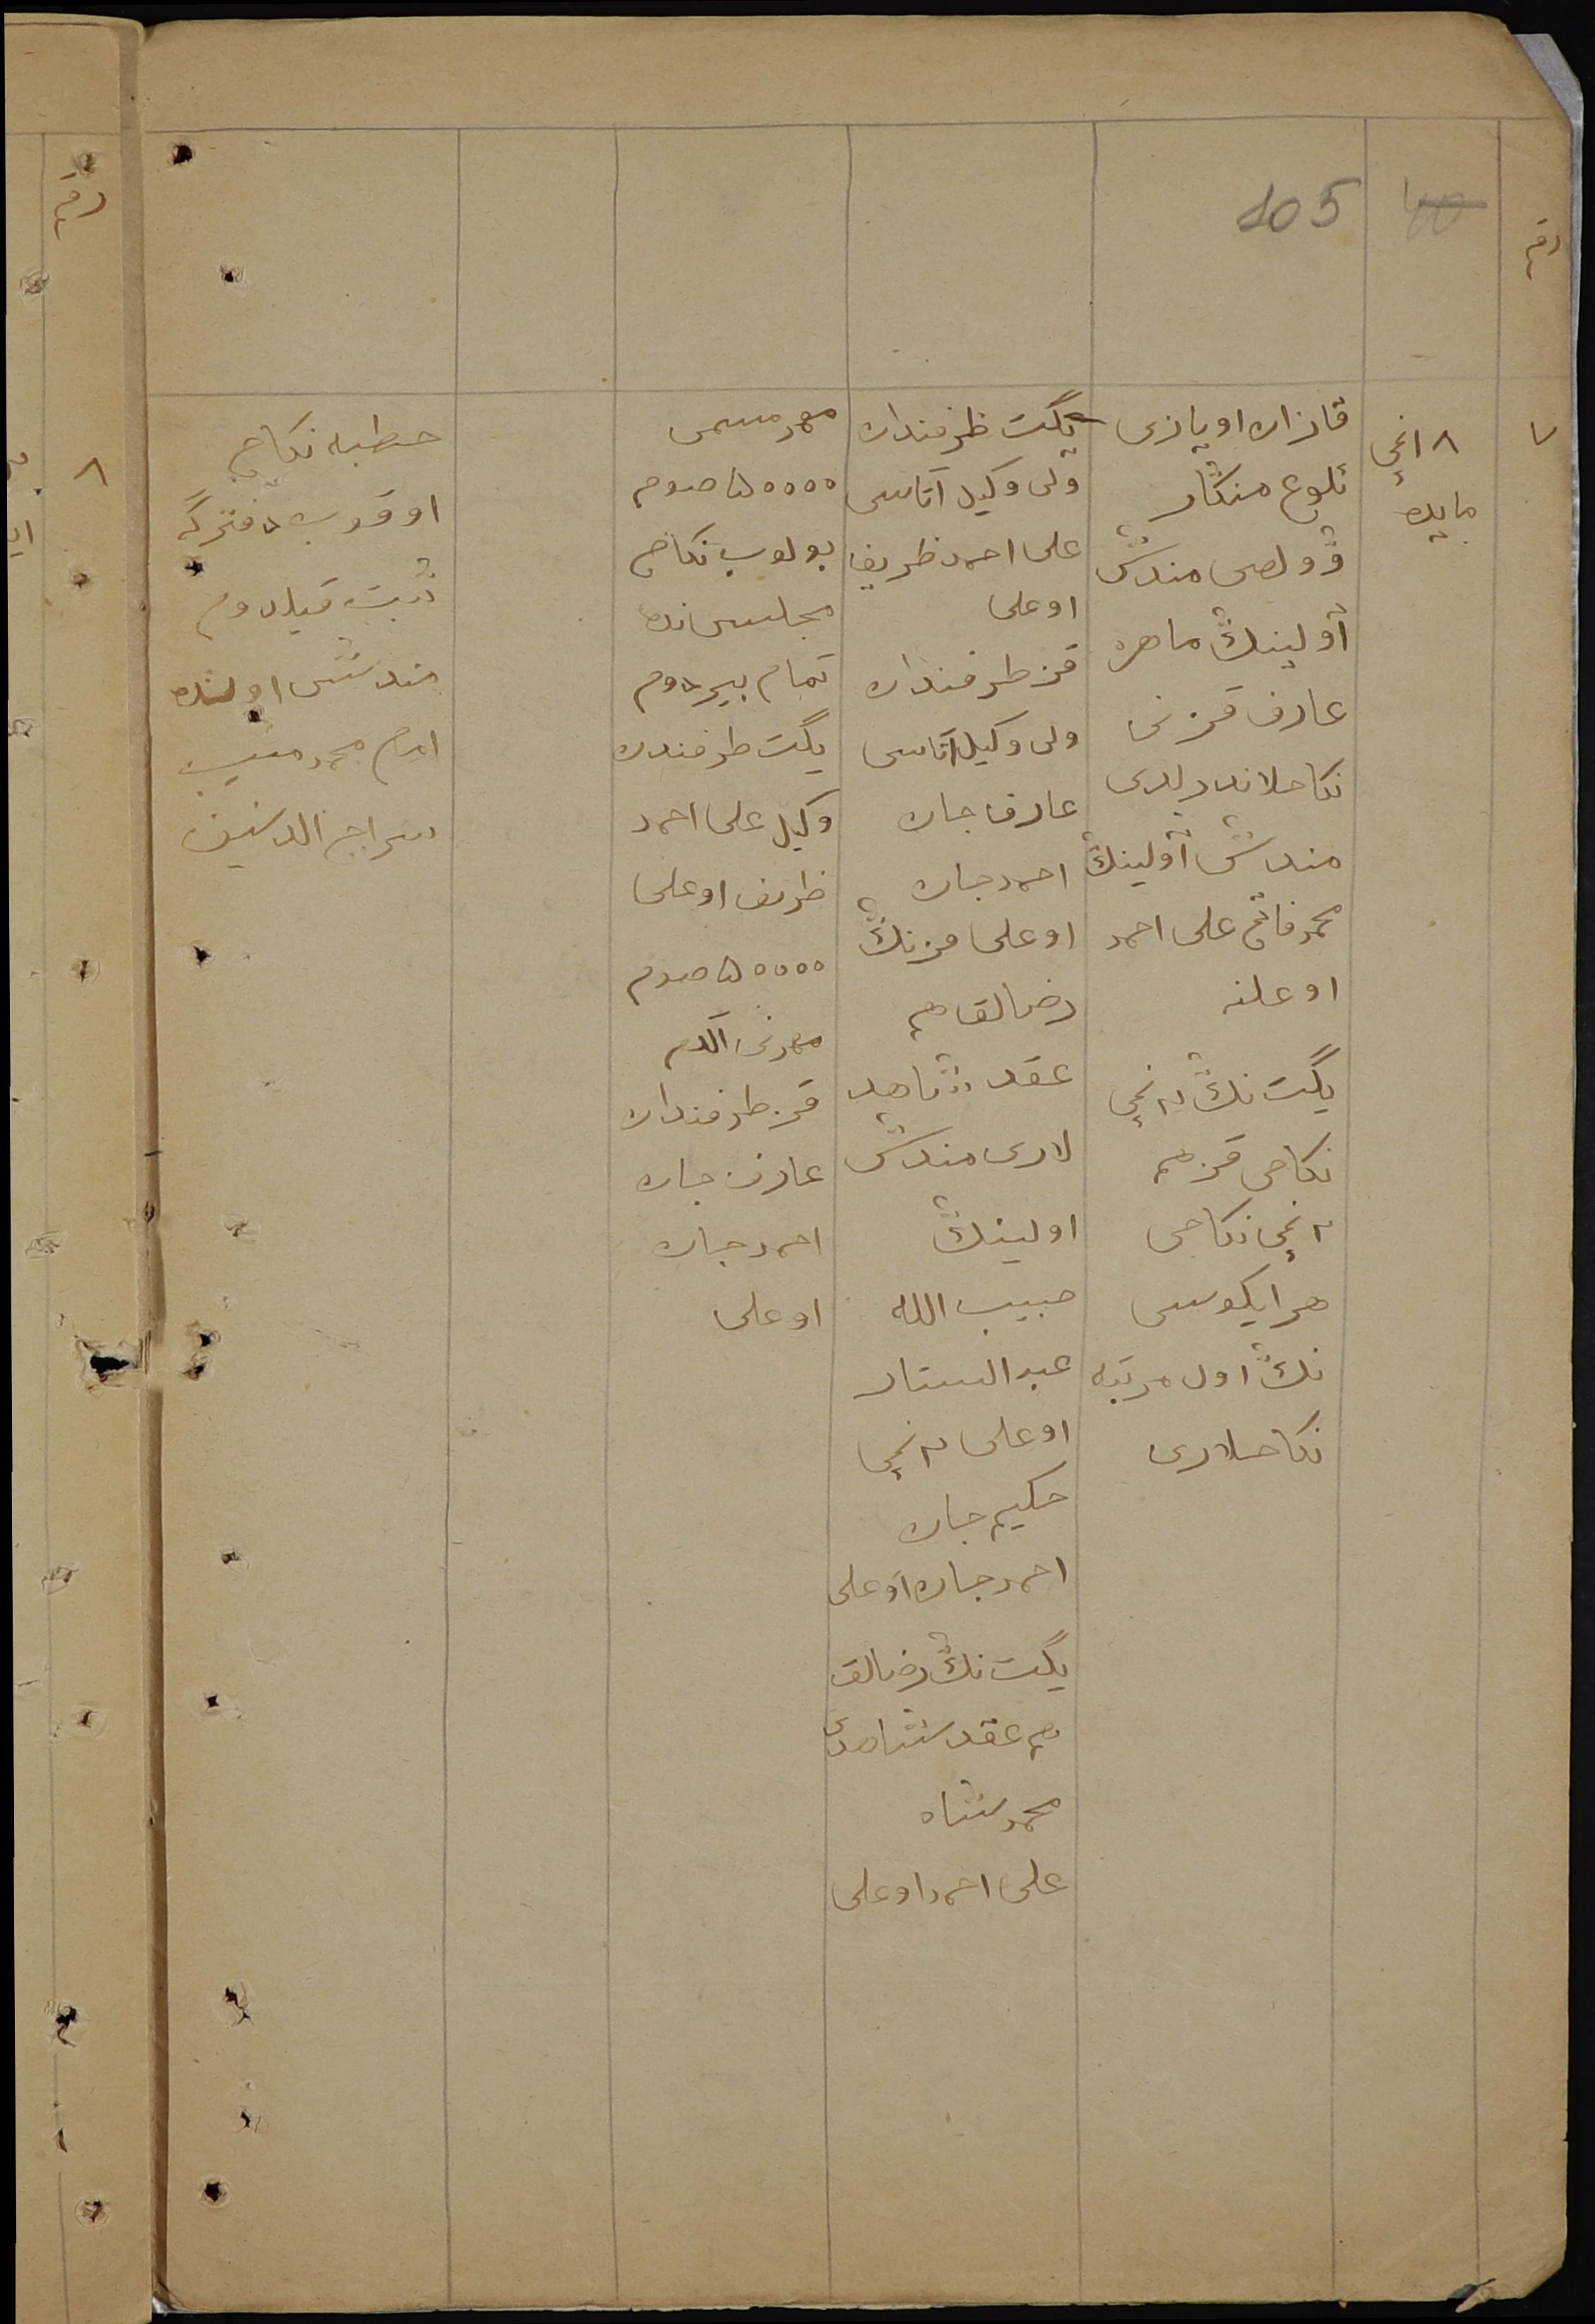 105
رقم
۷
۸ انچی
مایده
قازان اویازی
ئلوع منگار
وولصی مندش
آولینڭ ماهره
عارف قزنی
نکاحلاندرلدی
مندش آولینڭ
محمد فاتح علی احمد
اوعلنه
یگت نڭ ۲ نچی
نکاحی قزهم
۲ نچی نکاحی
هر ایکوسی
نڭ اول مرتبه
نکاحلاری
یگت طرفندان
ولی وکیل آتاسی
علی احمد ظریف
اوعلی
قز طرفندان
ولی وکیل آتاسی
عارف جان
احمد جان
اوعلی قزنڭ
رضالق هم
عقد شاهد
لاری مندش
اولینڭ
حبیب الله
عبد الستار
اوعلی ۲ نچی
حکیم جان
احمد جان اوعلی
یگت نڭ رضالق
هم عقد شاهدی
محمد شاه
علی احمد اوعلی
مهر مسمی
۵۰۰۰۰ صوم
بولوب نکاح
مجلسی نده
تمام بیردوم
یگت طرفندن
وکیل علی احمد
ظریف اوعلی
۵۰۰۰۰ صوم
مهرنی آلدم
قز طرفندان
عارف جان
احمد جان
اوعلی
خطبه نکاح
اوقوب دفترگه
ثبت قیلدوم
مندش اولنده
امام محمد منیب
سراج الدینف
رقم
۸